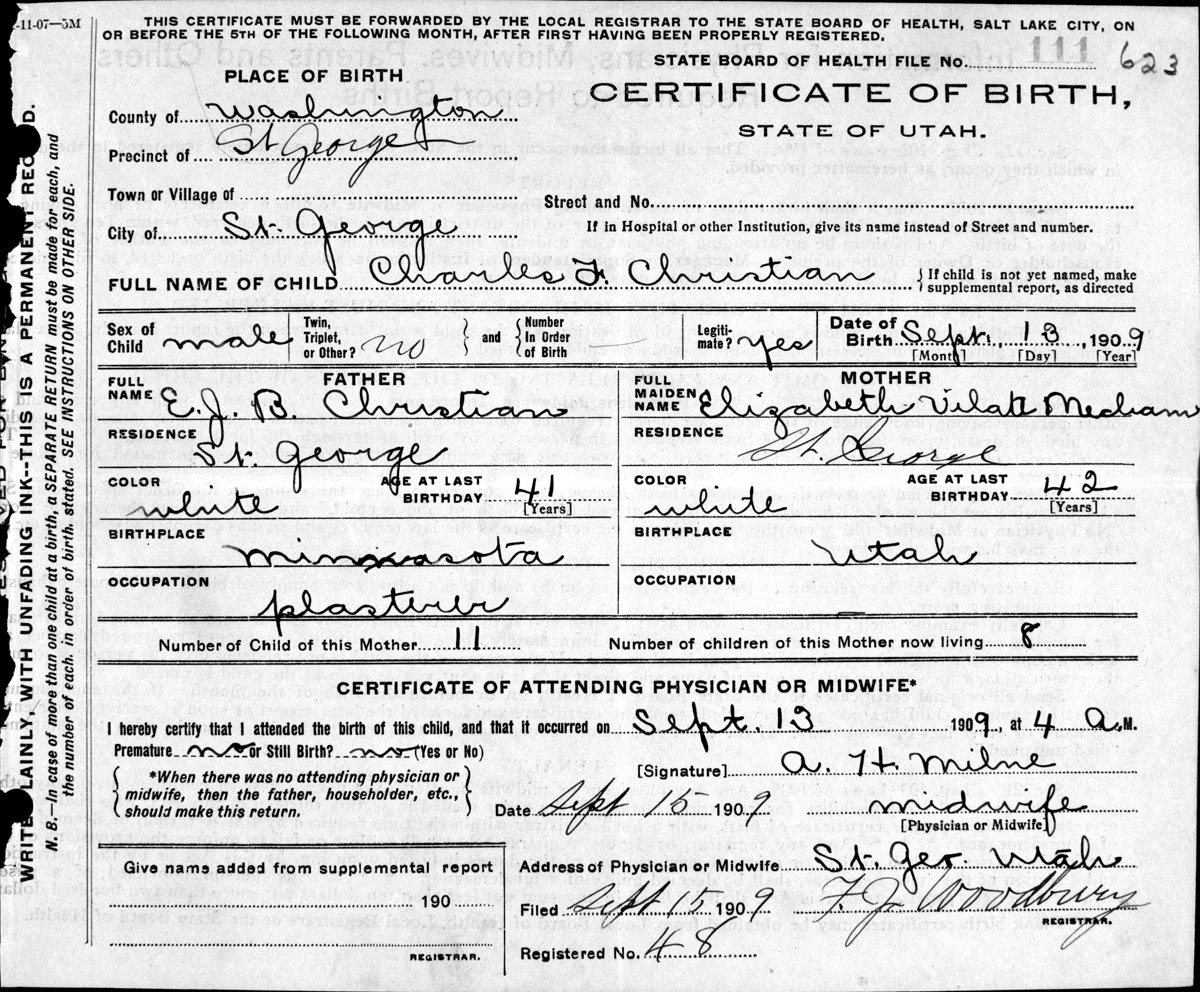 -11-07—5M
THIS CERTIFICATE MUST BE FORWARDED BY THE LOCAL REGISTRAR TO THE STATE BOARD OF HEALTH, SALT LAKE CITY, ON
OR BEFORE THE 5TH OF THE FOLLOWING MONTH, AFTER FIRST HAVING BEEN PROPERLY REGISTERED.
STATE BOARD OF HEALTH FILE No. 111 623
PLACE OF BIRTH
CERTIFICATE OF BIRTH,
STATE OF UTAH.
County of Washington
Precinct of St George
Town or Village of
Street and No.
City of St. George
If in Hospital or other Institution, give its name instead of Street and number.
FULL NAME OF CHILD Charles F. Christian { If child is not yet named, make
supplemental report, as directed
Sex of Child male
Twin, Triplet, or Other? no
and { Number In Order of Birth —
Legiti-mate? yes
Date of Birth Sept. 13, 1909
[Month] [Day] [Year]
FATHER
FULL NAME E. J. B. Christian
RESIDENCE
St. George
COLOR white
AGE AT LAST BIRTHDAY 41
[Years]
BIRTHPLACE
OCCUPATION
plasterer
MOTHER
FULL MAIDEN NAME Elizabeth Mecham
RESIDENCE
St. George
COLOR white
AGE AT LAST BIRTHDAY 42
[Years]
BIRTHPLACE
Utah
OCCUPATION
—
Number of Child of this Mother 11
Number of children of this Mother now living 8
CERTIFICATE OF ATTENDING PHYSICIAN OR MIDWIFE*
I hereby certify that I attended the birth of this child, and that it occurred on Sept. 13 1909, at 4 A.M.
Premature no or Still Birth? no (Yes or No)
{ *When there was no attending physician or
midwife, then the father, householder, etc.,
should make this return. }
[Signature] A. H. Milne
Date Sept 1909 midwife
[Physician or Midwife]
Give name added from supplemental report
190
REGISTRAR.
Address of Physician or Midwife St. Geo. Utah
Filed Sept 15 1909 F J Woodbury
REGISTRAR.
Registered No. 48
WRITE PLAINLY WITH UNFADING INK--THIS IS A PERMANENT RECORD.
N. B.—In case of more than one child at a birth, a SEPARATE RETURN must be made for each, and
the number of each, in order of birth, stated. SEE INSTRUCTIONS ON OTHER SIDE.